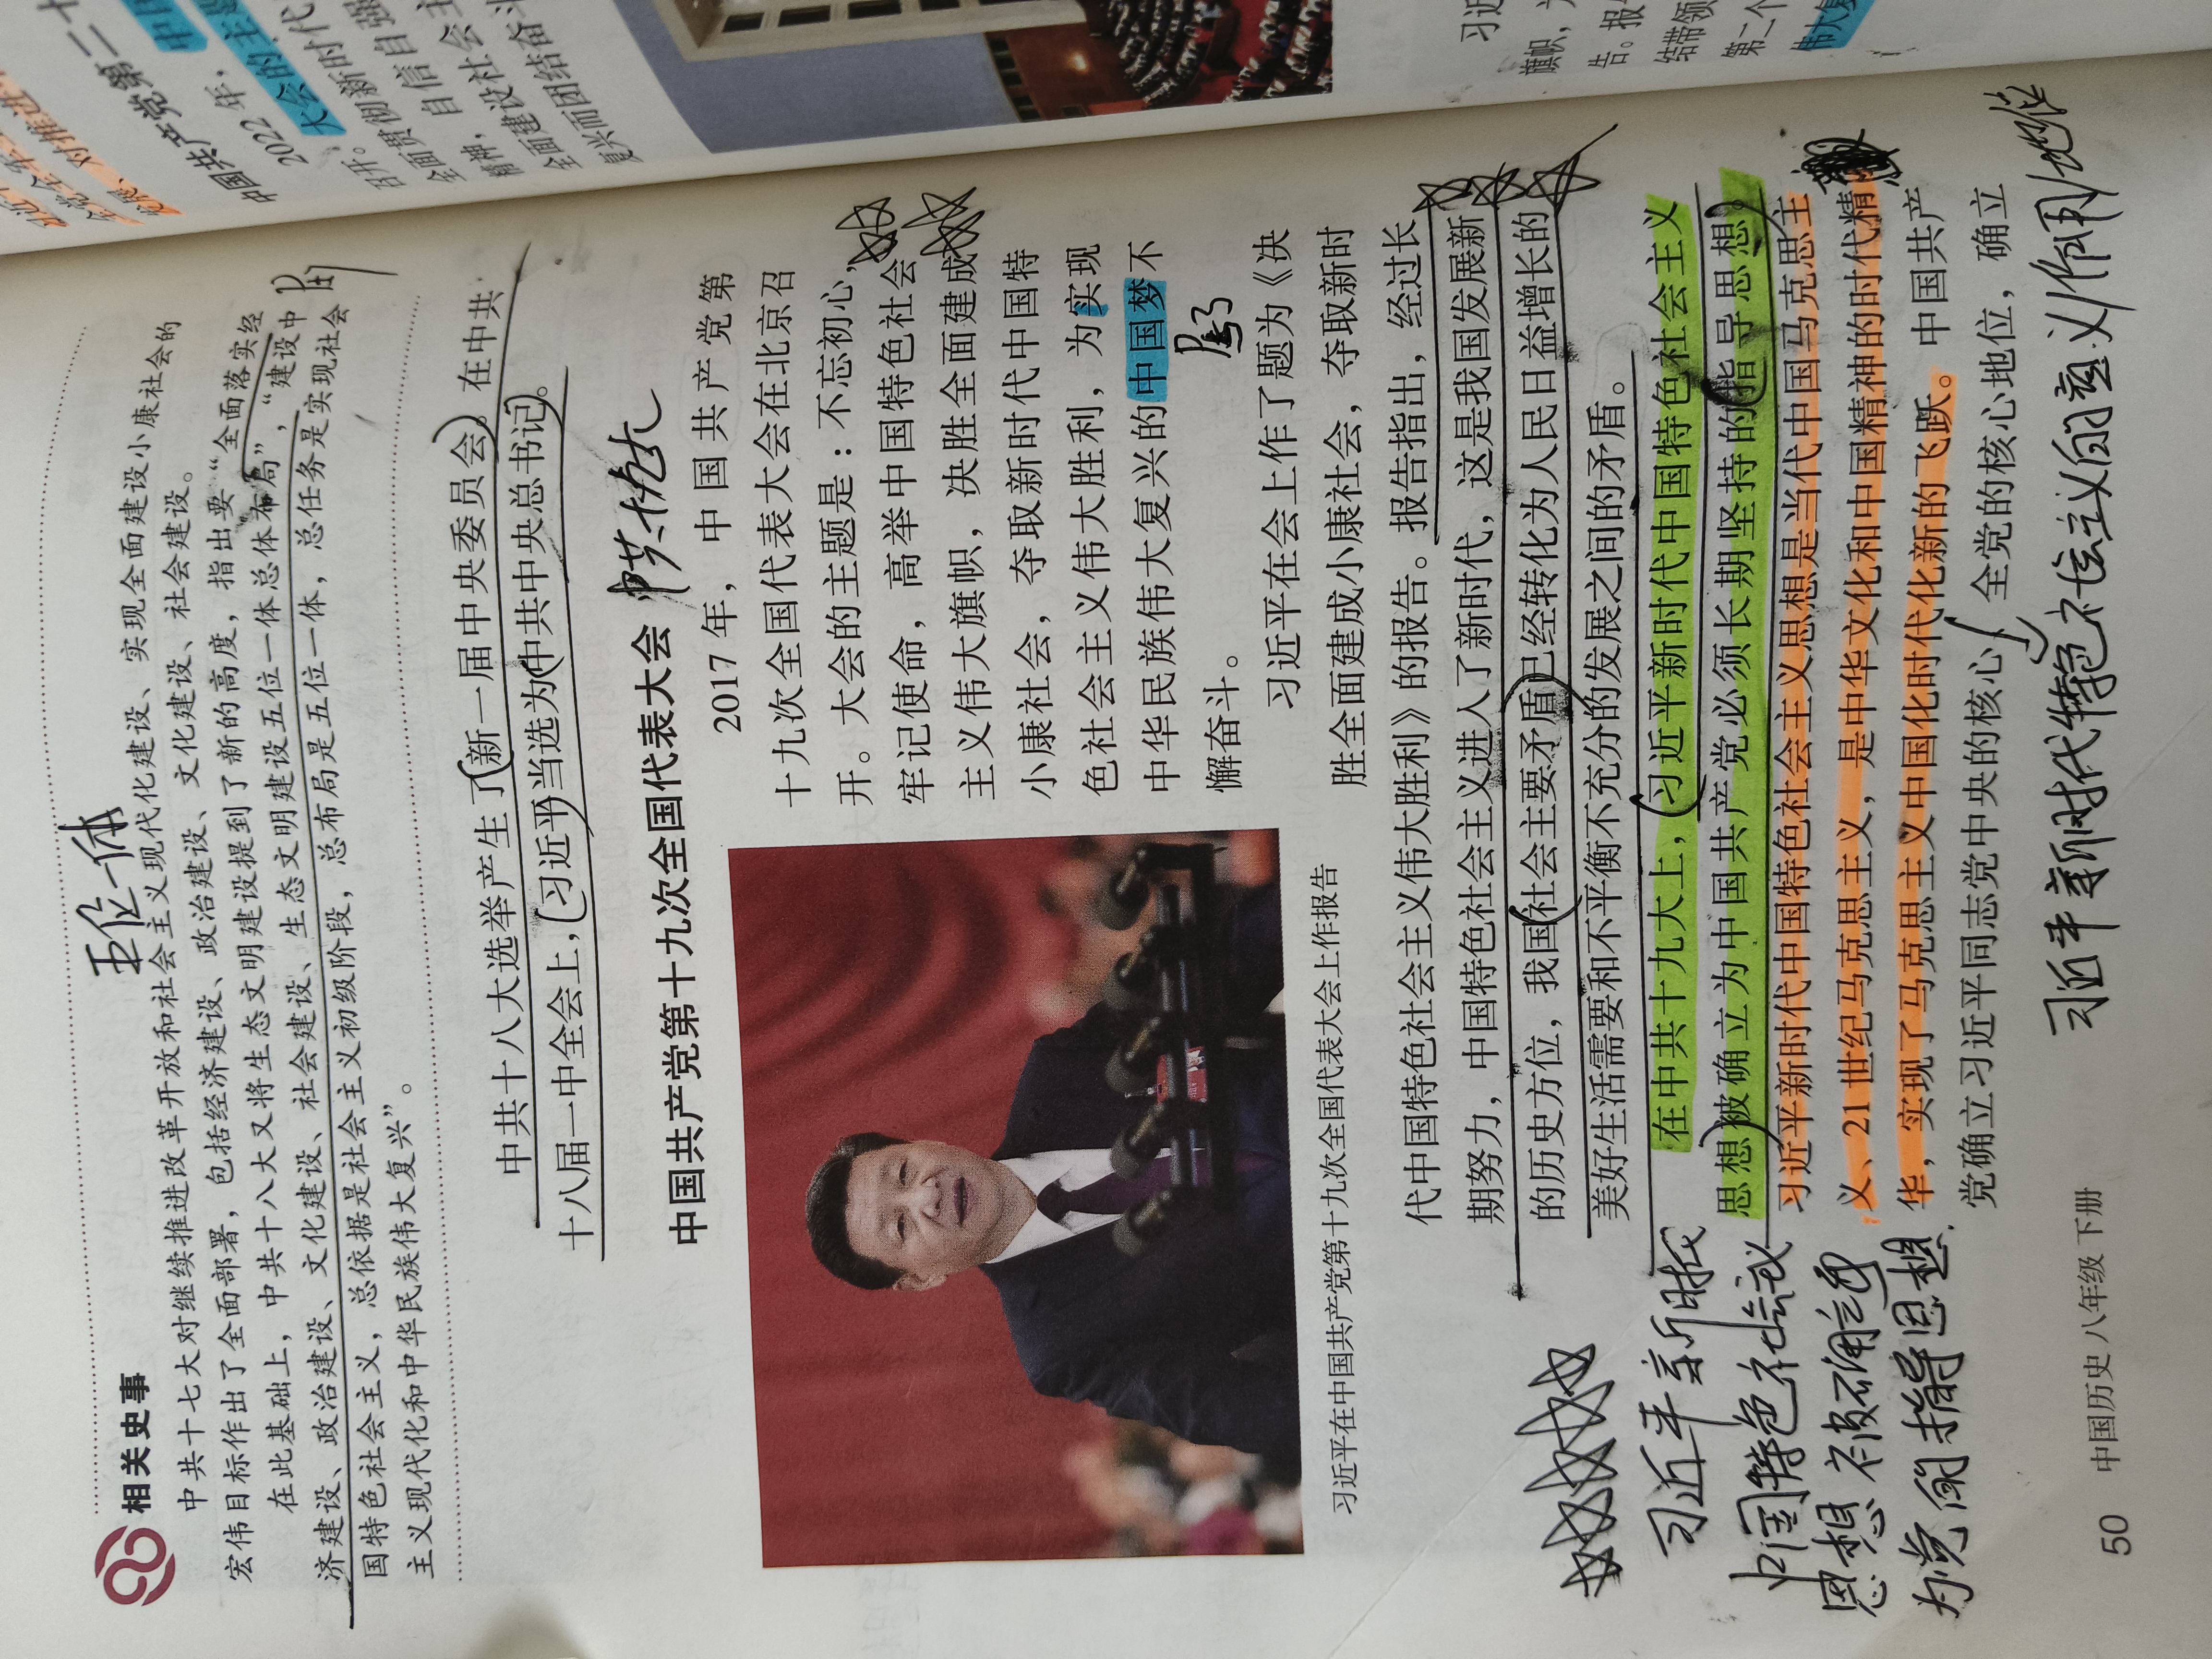 五位一体
相关史事
中共十七大对继续推进改革开放和社会主义现代化建设、实现全面建设小康社会的
宏伟目标作出了全面部署，包括经济建设、政治建设、文化建设、社会建设。
在此基础上，中共十八大又将生态文明建设提到了新的高度，指出要“全面落实经
济建设、政治建设、文化建设、社会建设、生态文明建设五位一体总体布局”，“建设中
国特色社会主义，总依据是社会主义初级阶段，总布局是五位一体，总任务是实现社会
主义现代化和中华民族伟大复兴”。
中共十八大选举产生了新一届中央委员会。在中共
十八届一中全会上，习近平当选为中共中央总书记。
中国共产党第十九次全国代表大会
中共十九大
2017年，中国共产党第
十九次全国代表大会在北京召
开。大会的主题是：不忘初心，
牢记使命，高举中国特色社会
主义伟大旗帜，决胜全面建成
小康社会，夺取新时代中国特
色社会主义伟大胜利，为实现
中华民族伟大复兴的中国梦不
懈奋斗。
习近平在中国共产党第十九次全国代表大会上作报告
习近平在会上作了题为《决
胜全面建成小康社会，夺取新时
代中国特色社会主义伟大胜利》的报告。报告指出，经过长
期努力，中国特色社会主义进入了新时代，这是我国发展新
的历史方位，我国社会主要矛盾已经转化为人民日益增长的
美好生活需要和不平衡不充分的发展之间的矛盾。
在中共十九大上，习近平新时代中国特色社会主义
思想被确立为中国共产党必须长期坚持的指导思想。
习近平新时代中国特色社会主义思想是当代中国马克思主
义、21世纪马克思主义，是中华文化和中国精神的时代精
华，实现了马克思主义中国化时代化新的飞跃。中国共产
党确立习近平同志党中央的核心、全党的核心地位，确立
习近平新时代
中国特色社会
思想被确立
为党的指导思想
习近平新时代特色社会主义的意义/作用/地位
50
中国历史 八年级 下册
中国共产党第二十
2022年，
大会的主
召开。
全面贯彻新时代
自信自强
精神，
全面建设社会主
复兴而团结奋斗
习近
旗帜，
告。报
结带领
第二个
伟大复